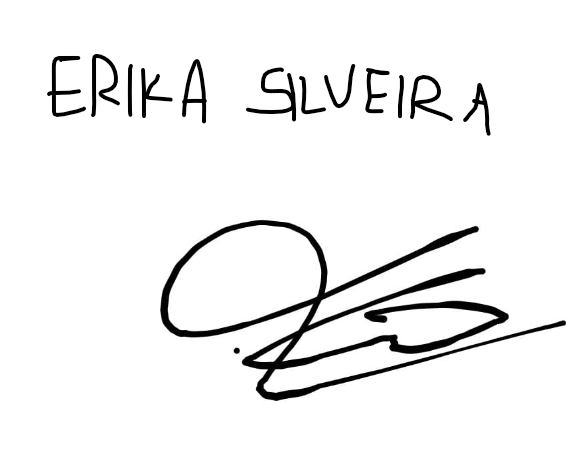 ERIKA SILVEIRA